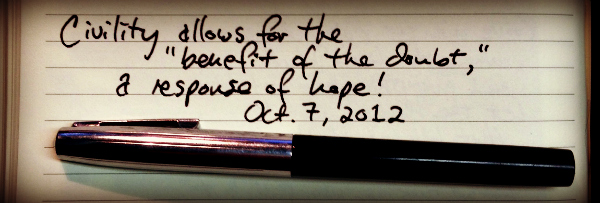 Civility allows for the
"benefit of the doubt,"
a response of hope!
Oct. 7, 2012